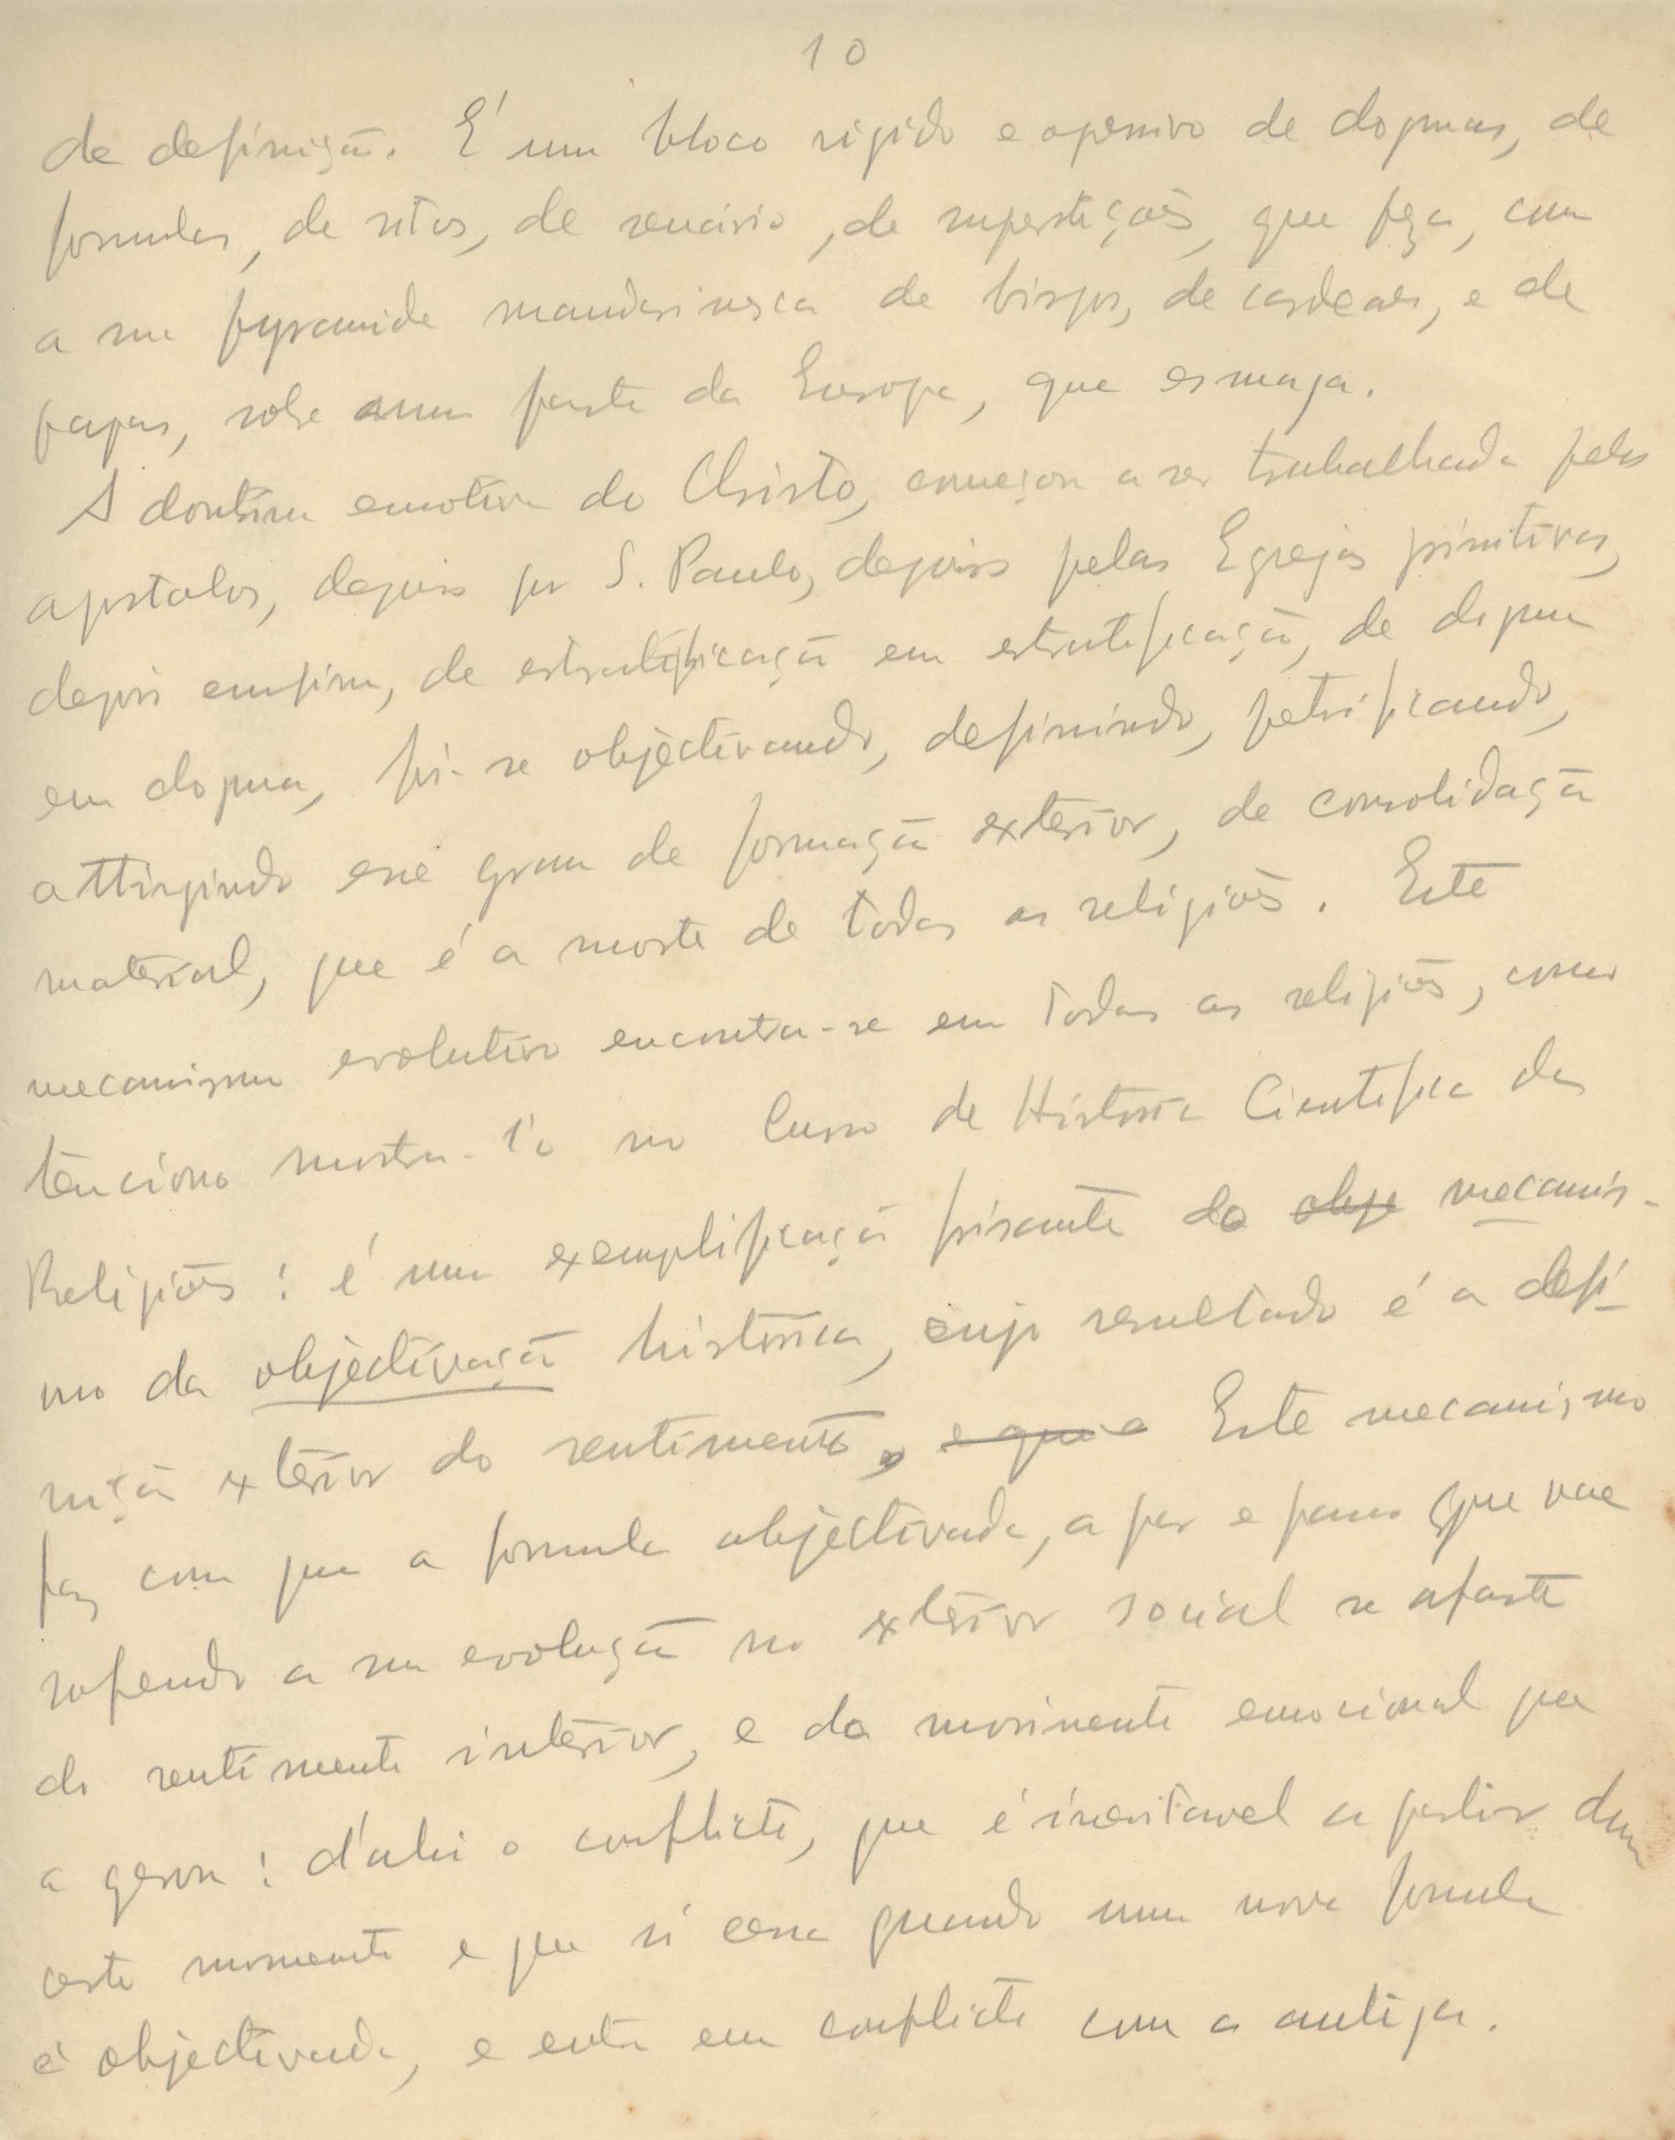 10
de definição. É um bloco rigido e opressivo de dogmas, de
formulas, de ritos, de scenário, de superstições, que peza, com
a sua pyramide mandarinesca de bispos, de cardeaes, e de
papas, sobre uma parte da Europa, que esmaga.
A doutrina emotiva do Christo, começou a ser trabalhada pelos
apostolos, depois por S. Paulo, depois pelas Egrejas primitivas,
depois emfim, de estratificação em estratificação, de dogma
em dogma, foi-se objectivando, definindo, petrificando,
attingindo esse grau de formação exterior, de consolidação
material, que é a morte de todas as religiões. Este
mecanismo evolutivo encontra-se em todas as religiões, como
tenciono mostra-l'o no Curso de História Cientifica das
Religiões: é uma exemplificação frisante do obje mecanis-
mo da objectivação histórica, cujo resultado é a defi-
nição exterior do sentimento, e que o Este mecanismo
faz com que a formula objectivada, a par e passo que vae
sofrendo a sua evolução no exterior social se afaste
do sentimento interior, e do movimento emocional que
a gerou: d'ahi o conflicto, que é inevitavel a partir dum
certo momento e que só cessa quando uma nova formula
é objectivada, e entra em conflicto com a antiga.